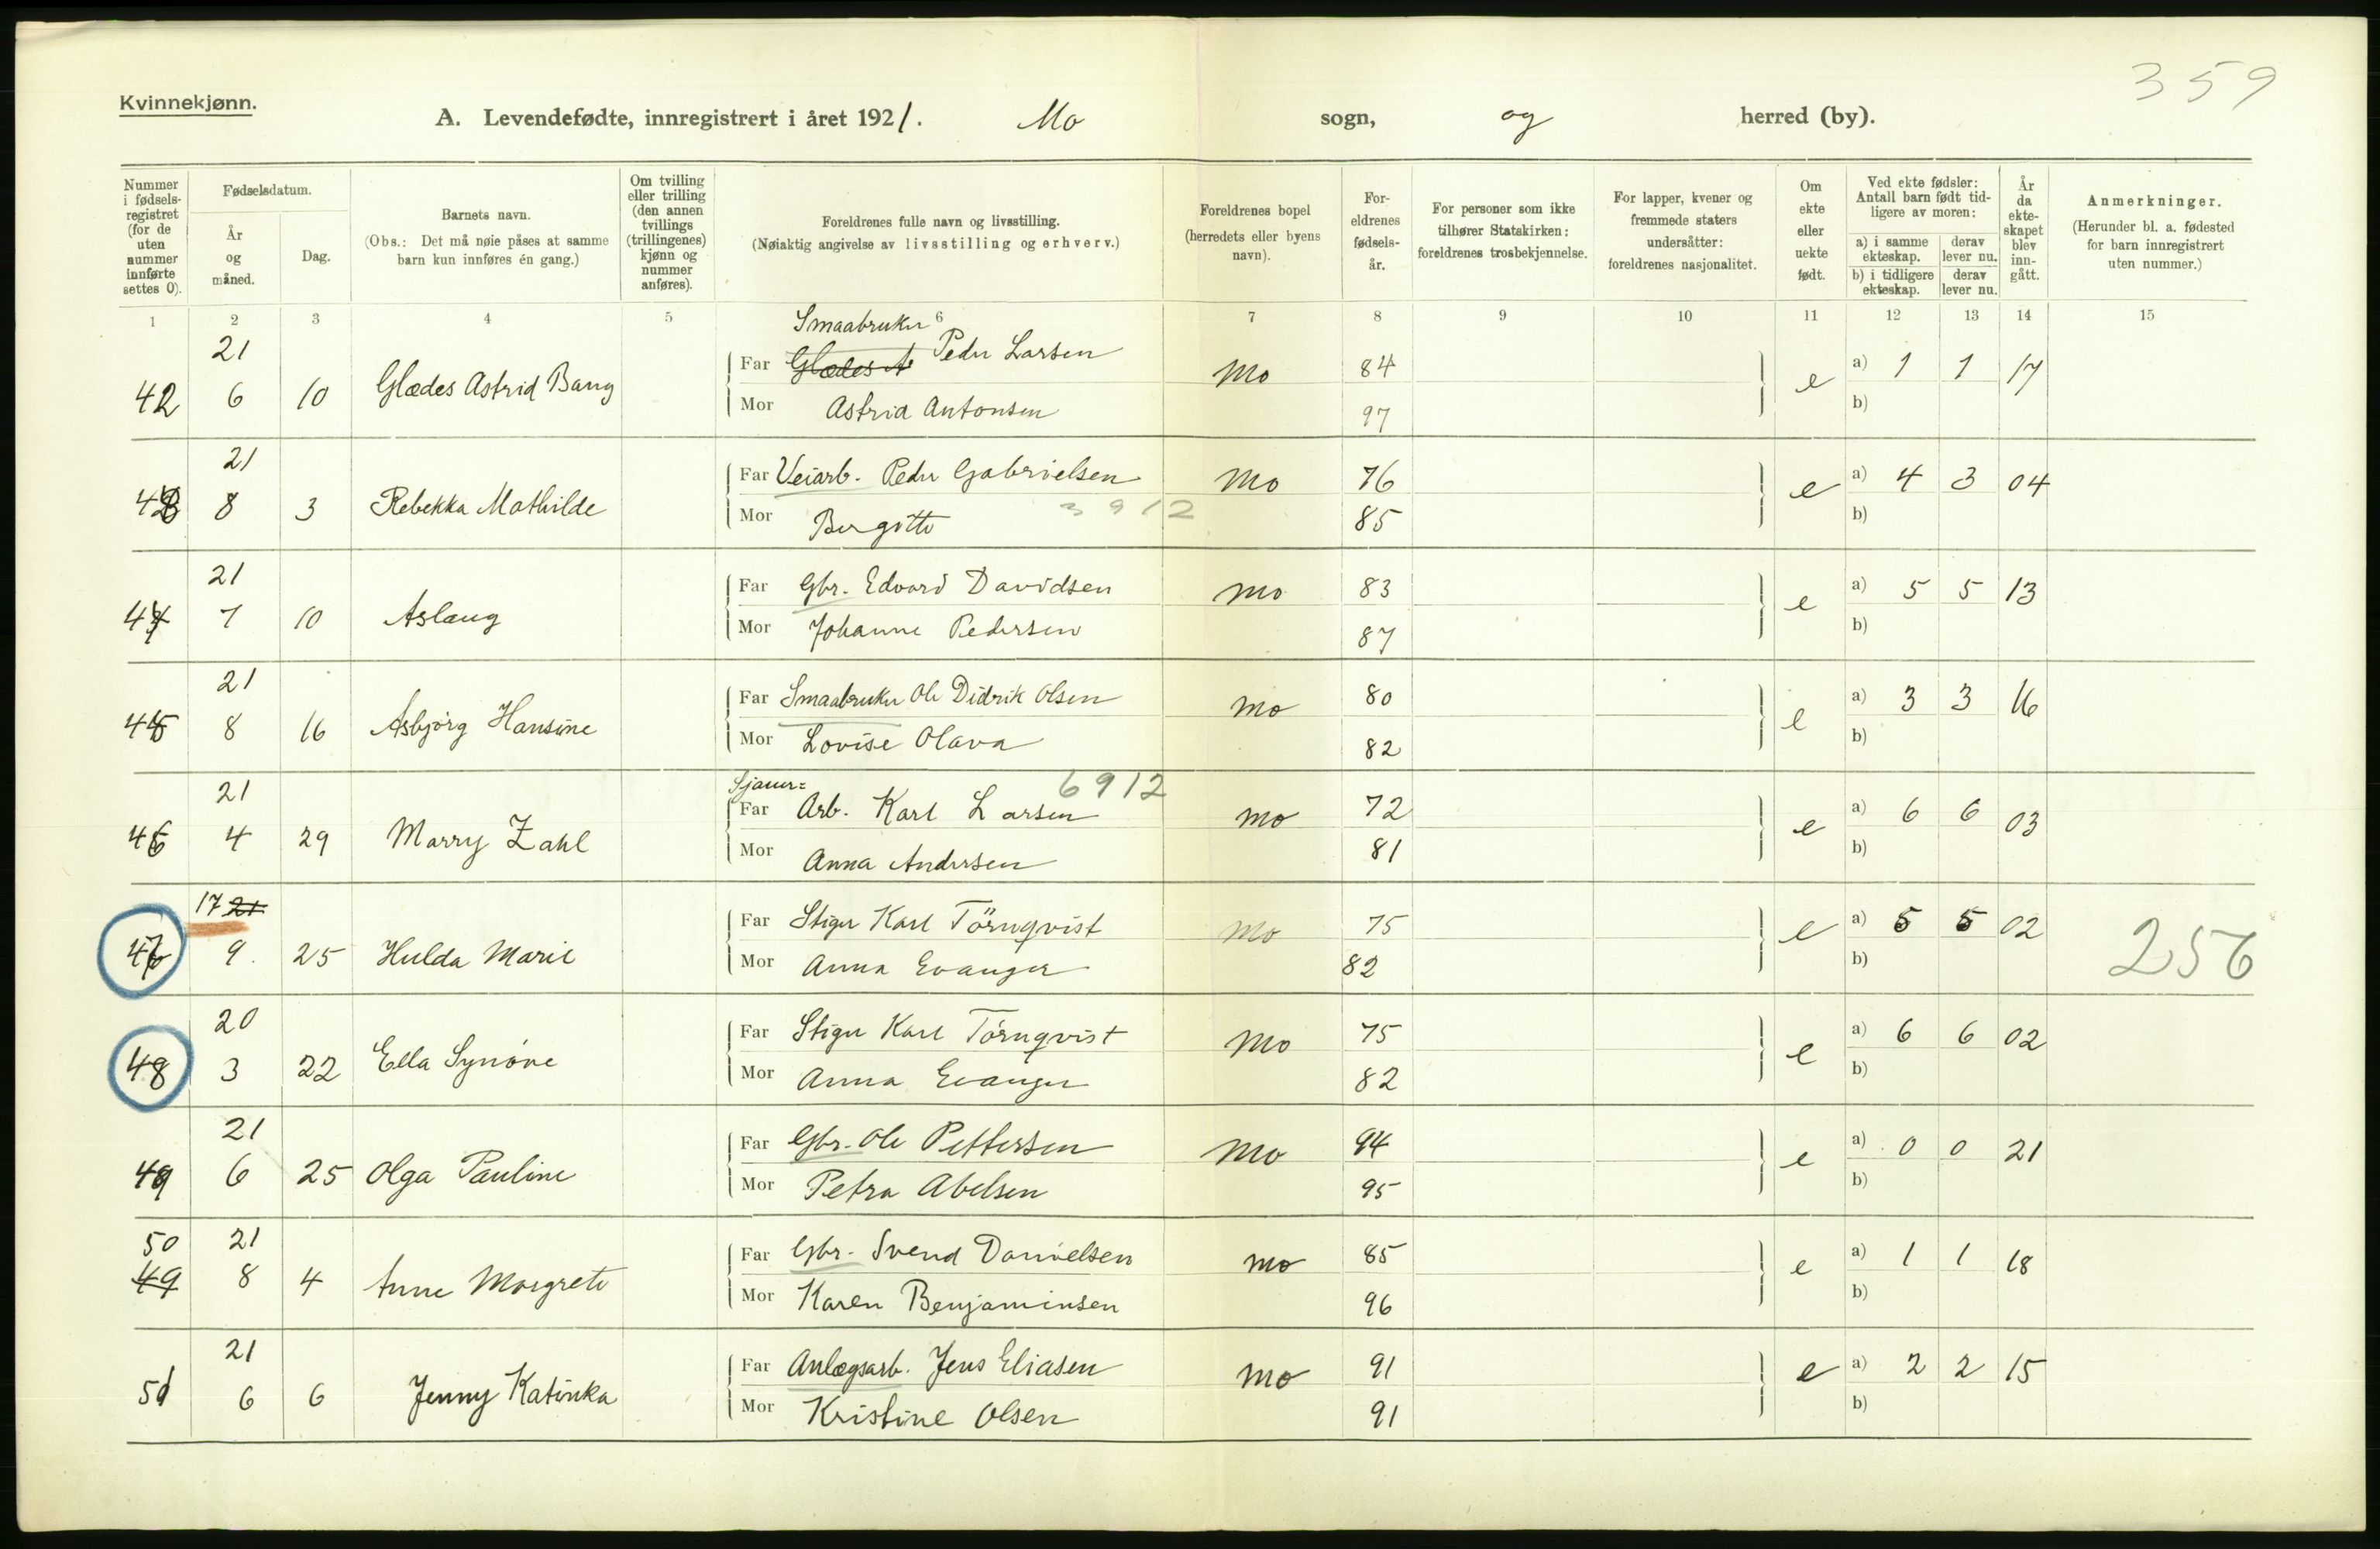 359
Kvinnekjønn.
A. Levendefødte, innregistrert i året 1921. Mo sogn, og herred (by).
Nummer i fødsels-registret (for de uten nummer innførte settes 0).
Fødselsdatum.
År og måned.
Dag.
Barnets navn.
(Obs.: Det må nøie påses at samme barn kun innføres én gang.)
Om tvilling eller trilling (den annen tvillings (trillingenes) kjønn og nummer anføres).
Foreldrenes fulle navn og livsstilling.
(Nøiaktig angivelse av livsstilling og erhverv.)
Foreldrenes bopel (herredets eller byens navn).
For-eldrenes fødsels-år.
For personer som ikke tilhører Statskirken: foreldrenes trosbekjennelse.
For lapper, kvener og fremmede staters undersåtter: foreldrenes nasjonalitet.
Om ekte eller uekte født.
Ved ekte fødsler: Antall barn født tid-ligere av moren:
a) i samme ekteskap. derav lever nu.
b) i tidligere ekteskap. derav lever nu.
År da ekte-skapet blev inn-gått.
Anmerkninger.
(Herunder bl. a. fødested for barn innregistrert uten nummer.)
1 2 3 4 5 6 7 8 9 10 11 12 13 14 15
42 21 6 10 Glædes Astrid Bang
Smaabruker
Far Glædes A Peder Larsen Mo 84 e a) 1 1 17
Mor Astrid Antonsen 97 b)
43 21 8 3 Rebekka Mathilde
Far Veiarb. Peder Gabrielsen Mo 76 e a) 4 3 04
3912
Mor Bergitte 85 b)
44 21 7 10 Aslaug
Far Gbr. Edvard Davidsen Mo 83 e a) 5 5 13
Mor Johanne Pedersen 87 b)
45 21 8 16 Asbjørg Hansine
Far Smaabruker Ole Didrik Olsen Mo 80 e a) 3 3 16
Mor Lovise Olava 82 b)
46 21 4 29 Marry Zahl
Sjauer= 6912
Far Arb. Karl Larsen Mo 72 e a) 6 6 03
Mor Anna Andersen 81 b)
47 17 21 9. 25 Hulda Marie
Far Stiger Karl Törnqvist Mo 75 e a) 5 5 02 256
Mor Anna Evanger 82 b)
48 20 3 22 Ella Synøve
Far Stiger Karl Törnqvist Mo 75 e a) 6 6 02
Mor Anna Evanger 82 b)
49 21 6 25 Olga Pauline
Far Gbr. Ole Pettersen Mo 94 e a) 0 0 21
Mor Petra Abelsen 95 b)
50 49 21 8 4 Anne Margrete
Far Gbr. Svend Danielsen Mo 85 e a) 1 1 18
Mor Karen Benjaminsen 96 b)
51 21 6 6 Jenny Katinka
Far Anlægsarb. Jens Eliasen Mo 91 e a) 2 2 15
Mor Kristine Olsen 91 b)